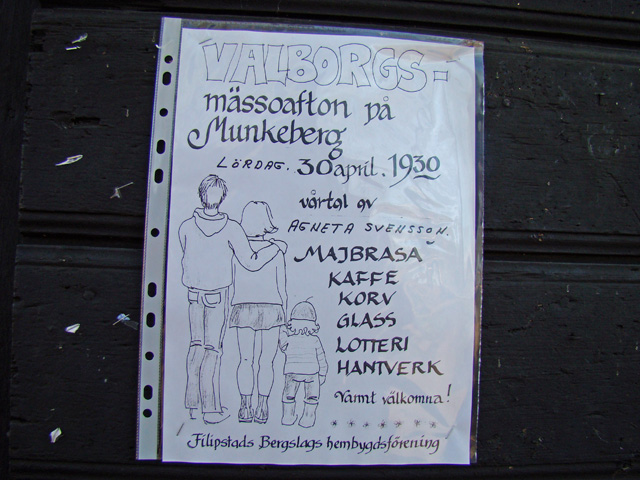 VALBORGS-
mässoafton på
Munkeberg
LÖRDAG. 30 april. 1930
vårtal av
AGNETA SVENSSON.
MAJBRASA
KAFFE
KORV
GLASS
LOTTERI
HANTVERK
Varmt välkomna!
Filipstads Bergslags hembygdsförening